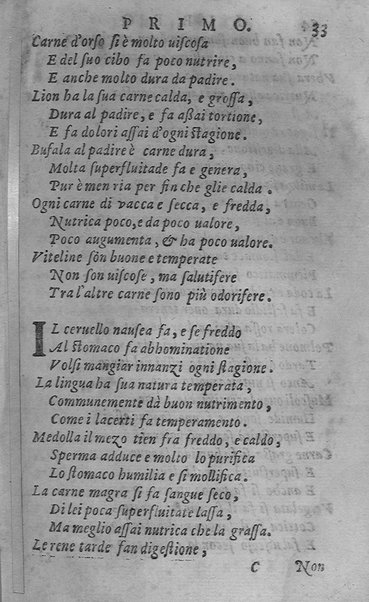 PRIMO. 33
Carne d'orso si è molto uiscosa
E del suo cibo fa poco nutrire,
E anche molto dura da padire.
Lion ha la sua carne calda, e grossa,
Dura al padire, e fa aßai tortione,
E fa dolori assai d'ogni stagione.
Bufala al padire è carne dura,
Molta superfluitade fa e genera,
Pur è men ria per fin che glie calda.
Ogni carne di vacca e secca, e fredda,
Nutrica poco, e da poco ualore,
Poco augumenta, & ha poco ualore.
Viteline són buone e temperate
Non son uiscose, ma salutifere
Tra l'altre carne sono più odorifere.
IL ceruello nausea fa, e se freddo
Al stomaco fa abhominatione
Volsi mangiar innanzi ogni stagione.
La lingua ha sua natura temperata,
Communemente dà buon nutrimento,
Come i lacerti fa temperamento.
Medolla il mezo tien fra freddo, e caldo,
Sperma adduce e molto lo purifica
Lo stomaco humilia e si mollifica.
La carne magra si fa sangue seco,
Di lei poca superfluitate lassa,
Ma meglio assai nutrica che la grassa.
Le rene tarde fan digestione,
C Non